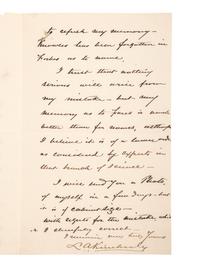 to refresh my memory -
Knowles has been forgotten in
Forbes as to name.
I trust that nothing
serious will arise from
my mistake - but my
memory as to faces is much
better than for names, although
I believe it is of a lower order
as considered by experts in
that branch of science -
I will send you a Photo,
of myself in a few days - but
it is of cabinet size -
with regrets for the mistake, which
I cheerfully correct
I remain very truly Yours
L A Kimberly